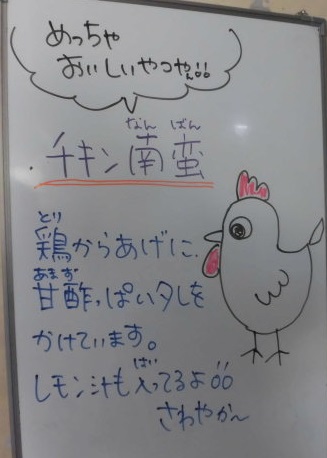 めっちゃ
おいしいやつやん!!
なん ばん
チキン南蛮
とり
鶏からあげに、
あまず
甘酢っぱいタレを
かけています。
はい
レモン汁も入ってるよ!!
さわやか〜